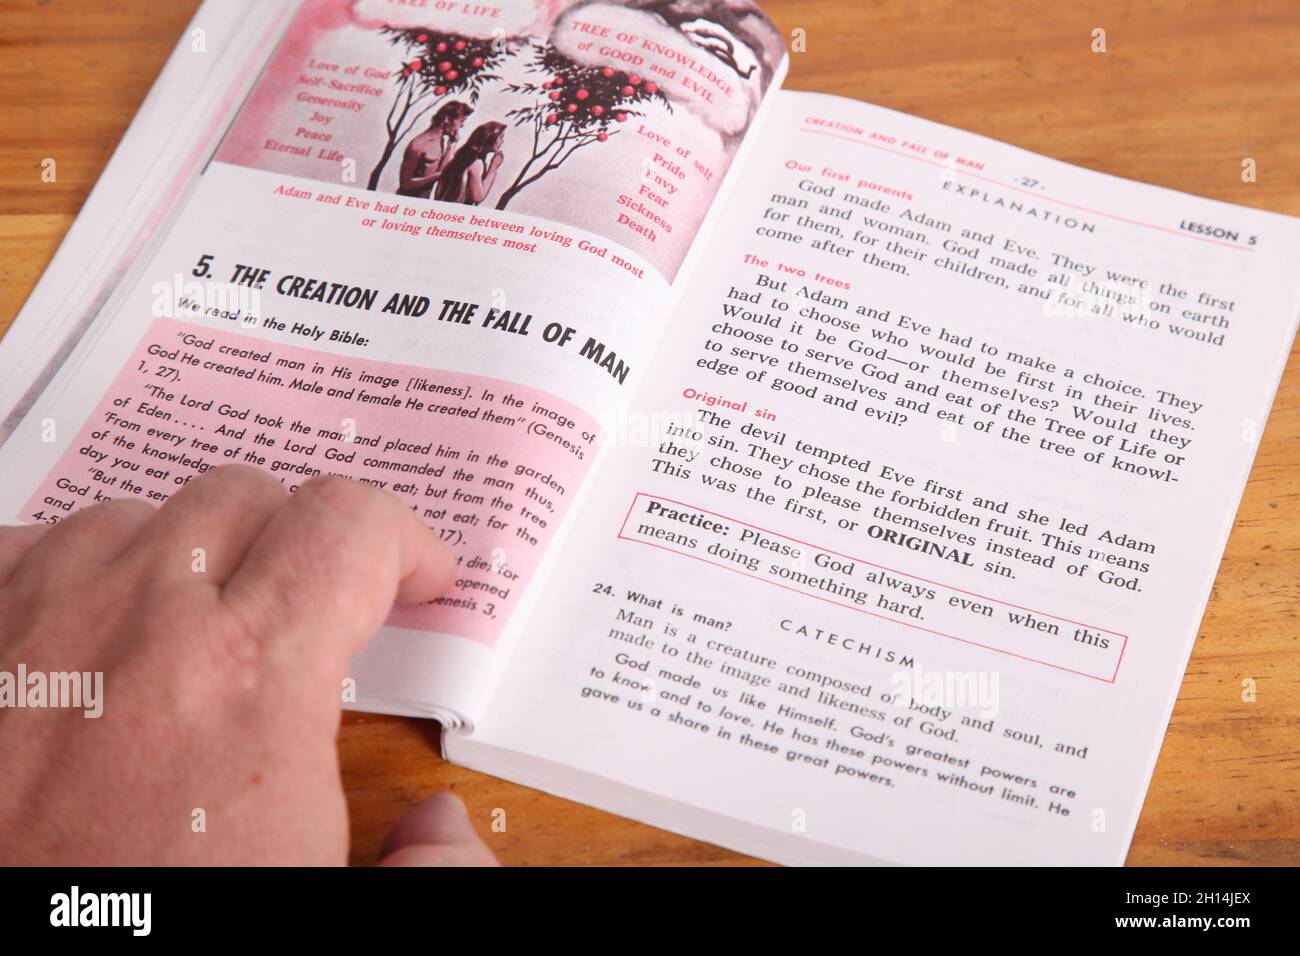 TREE OF LIFE
TREE OF KNOWLEDGE
of GOOD and EVIL
Love of God
Self-Sacrifice
Generosity
Joy
Peace
Eternal Life
Love of self
Pride
Envy
Fear
Sickness
Death
Adam and Eve had to choose between loving God most
or loving themselves most
5. THE CREATION AND THE FALL OF MAN
We read in the Holy Bible:
"God created man in His image [likeness]. In the image of
God He created him. Male and female He created them" (Genesis
1, 27).
"The Lord God took the man and placed him in the garden
of Eden . . . . And the Lord God commanded the man thus,
'From every tree of the garden you may eat; but from the tree
of the knowledge not eat; for
day you eat of 17).
"But the ser t die; for
God kn opened
and enesis 3,
4-5
CREATION AND FALL OF MAN
- 27 -
LESSON 5
EXPLANATION
Our first parents
God made Adam and Eve. They were the first
man and woman. God made all things on earth
for them, for their children, and for all who would
come after them.
The two trees
But Adam and Eve had to make a choice. They
had to choose who would be first in their lives.
Would it be God—or themselves? Would they
choose to serve God and eat of the Tree of Life or
to serve themselves and eat of the tree of knowl-
edge of good and evil?
Original sin
The devil tempted Eve first and she led Adam
into sin. They chose the forbidden fruit. This means
they chose to please themselves instead of God.
This was the first, or ORIGINAL sin.
Practice: Please God always even when this
means doing something hard.
CATECHISM
24. What is man?
Man is a creature composed of body and soul, and
made to the image and likeness of God.
God made us like Himself. God's greatest powers are
to know and to love. He has these powers without limit. He
gave us a share in these great powers.
alamy
Image ID: 2H14JEX
www.alamy.com